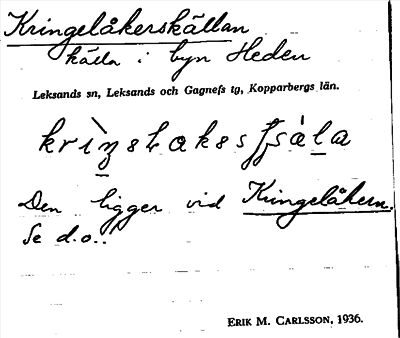 Kringelåkerskällan
källa i byn Heden
Leksands sn, Leksands och Gagnefs tg, Kopparbergs län.
Den ligger vid Kringelåkern.
Se d.o..
ERIK M. CARLSSON, 1936.